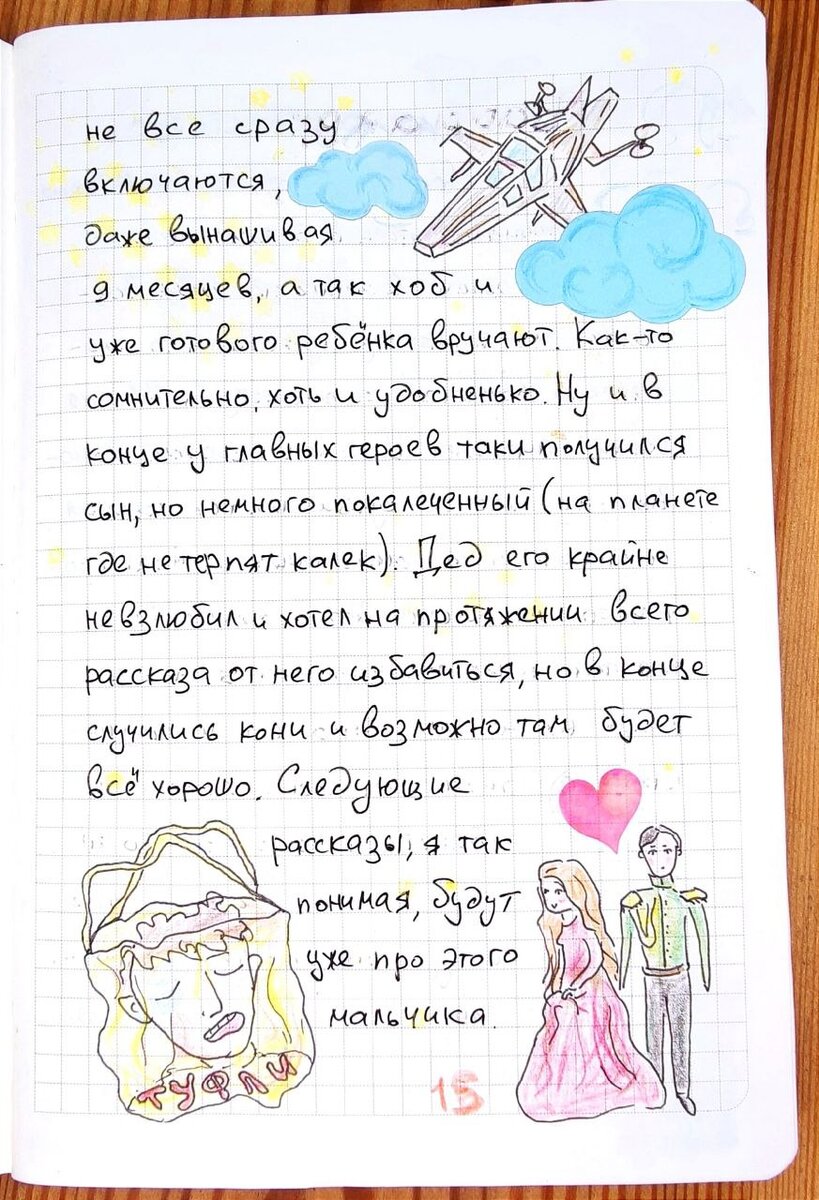 не все сразу
включаются,
даже вынашивая
9 месяцев, а так хоб и
уже готового ребёнка вручают. Как-то
сомнительно, хоть и удобненько. Ну и в
конце у главных героев таки получился
сын, но немного покалеченный (на планете
где не терпят калек). Дед его крайне
невзлюбил и хотел на протяжении всего
рассказа от него избавиться, но в конце
случились кони и возможно там будет
всё хорошо. Следующие
рассказы, я так
понимая, будут
уже про этого
мальчика.
ТУФЛИ
15